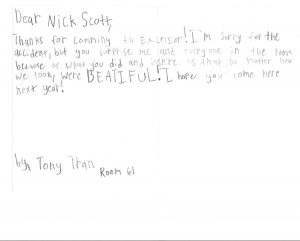 Dear Nick Scott,
Thanks for comming to Excelsior! I'm sorry for the
accident, but you surprise me and everyone in the room
because of what you did and inspire us that, no matter how
we look, were BEATIFUL! I hope you come here
next year!
by, Tony Tran
Room 61